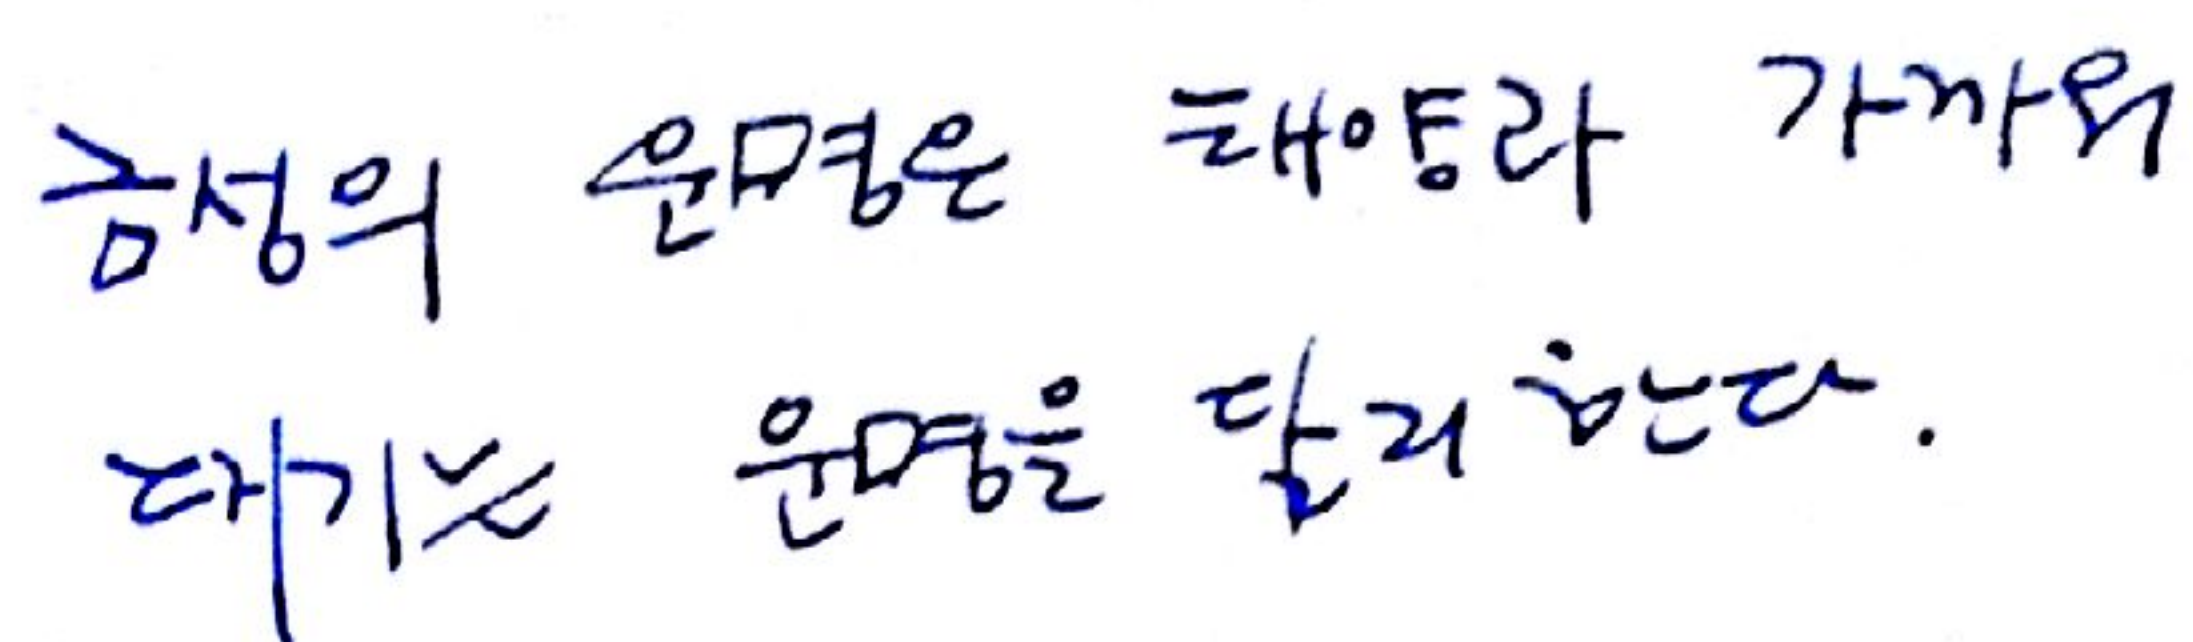 금성의 운명은 태양라 가까워
대기는 운명을 달리한다.